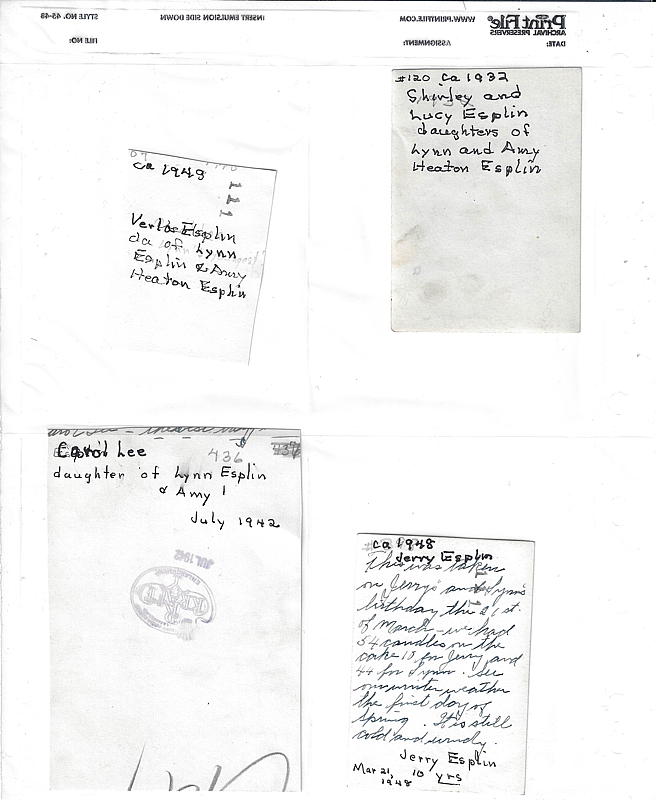 STYLE NO. 45-4B
INSERT EMULSION SIDE DOWN
WWW.PRINTFILE.COM
Print File®
ARCHIVAL PRESERVERS
FILE NO:
ASSIGNMENT:
DATE:
#120 Ca 1932
Shirley and
Lucy Esplin
daughters of
Lynn and Amy
Heaton Esplin
Ca 1948
111
Verla Esplin
da of Lynn
Esplin & Amy
Heaton Esplin
Carol Lee
436
daughter of Lynn Esplin
& Amy
July 1942
JUL 1942
ca 1948
Jerry Esplin
This was taken
on Jerry's and Lynn's
birthday the 21st.
of March - we had
54 candles on the
cake 10 for Jerry and
44 for Lynn. See
our winter weather
the first day of
Spring. It is still
cold and windy.
Jerry Esplin
Mar 21, 10 yrs
1948